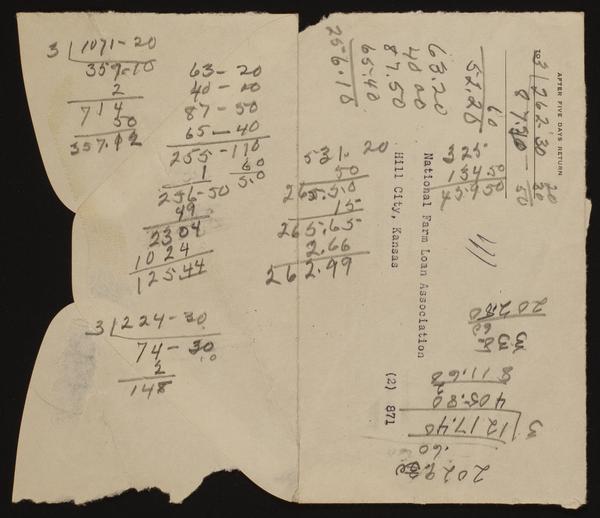 3 | 1071-20
359-10
2
714
50
357.12
63-20
40-20
87-50
65-40
255-110
1 60
256-50 50
49
2304
1024
125.44
3 | 224-30
74-30
2
148
531- 20
50
265.50
15
265.65
2.66
262.99
256.10
65.40
87.50
40 00
63.20
52.28
60
325
134 50
459 50
3 | 262-30
AFTER FIVE DAYS RETURN
TO
National Farm Loan Association
Hill City, Kansas
(2) 871
20280
811.60
2
405.80
3 | 1217.40
.60